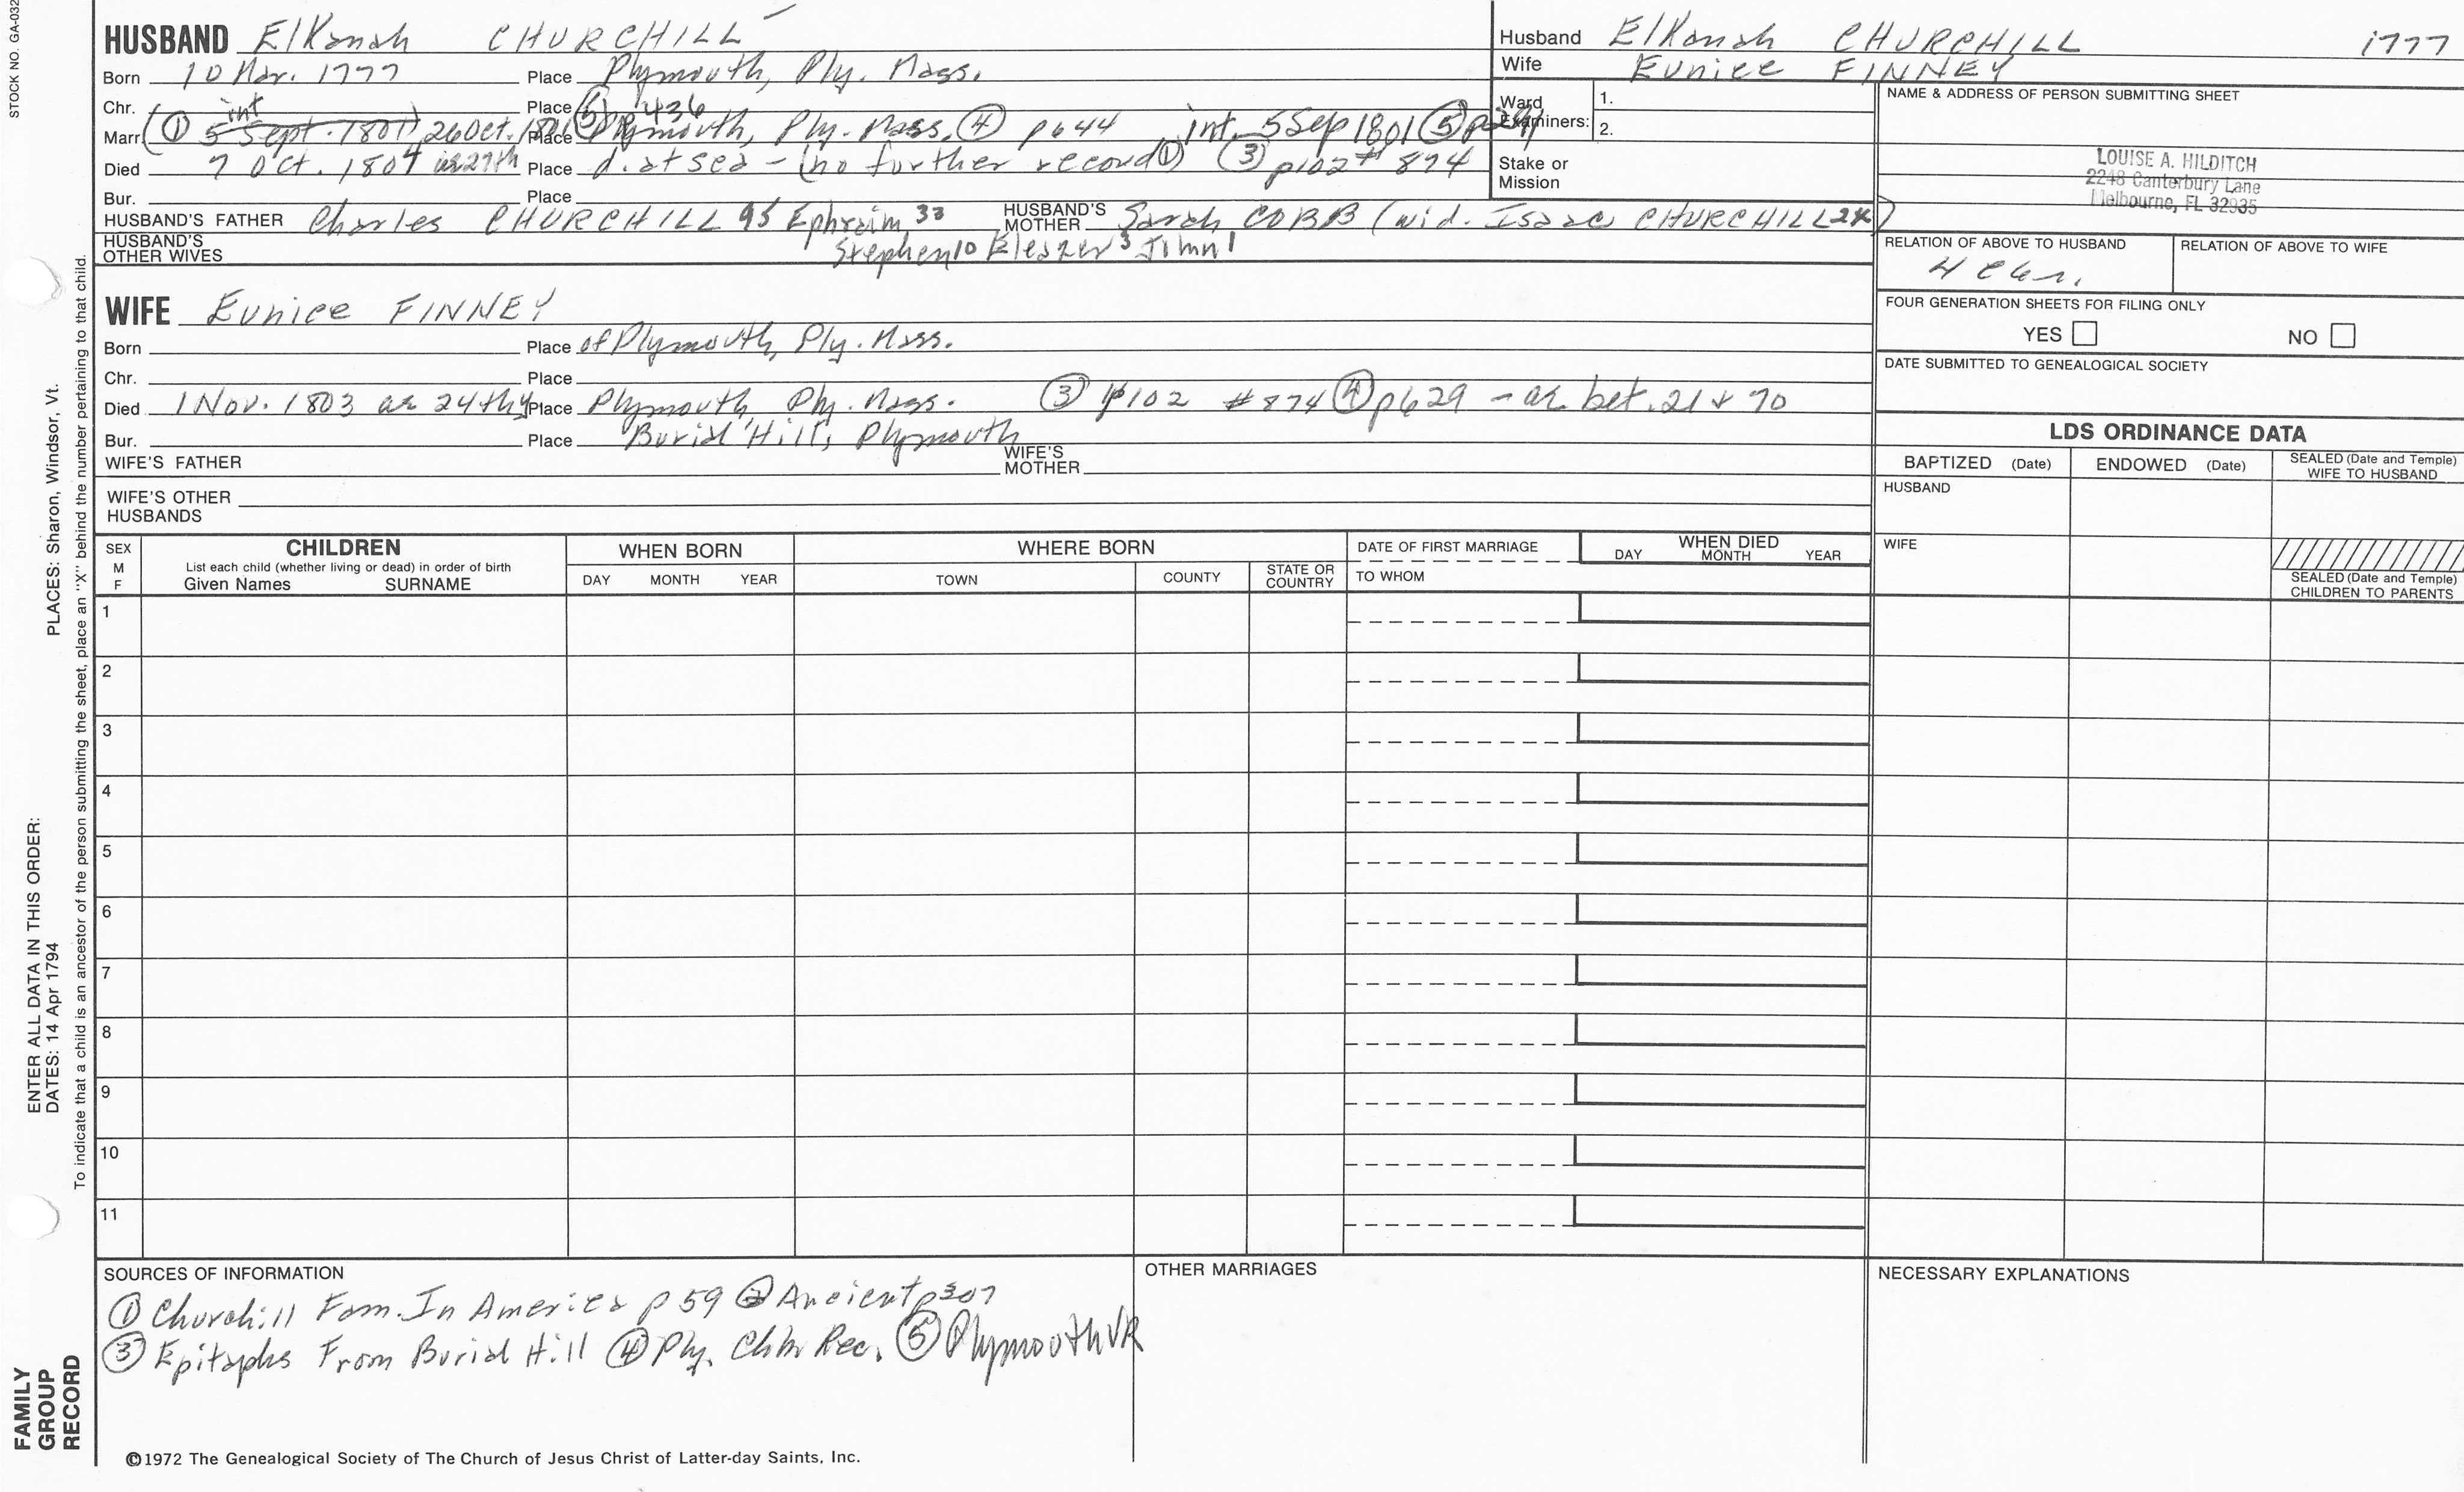 STOCK NO. GA-032
HUSBAND Elkanah CHURCHILL
Born 10 Mar. 1777 Place Plymouth, Ply. Mass.
Chr. Place ⑤ p 436
Marr. (① int 5 Sept. 1801) 26 Oct. 1801 Place Plymouth, Ply. Mass. ④ p644 int. 5 Sep 1801 ⑤
Died 7 Oct. 1804 in 27th Place d. at sea - (no further record ①) ③ p102 # 874
Bur. Place
HUSBAND'S FATHER Charles CHURCHILL 95 Ephraim 33 HUSBAND'S MOTHER Sarah COBB (wid. Isaac CHURCHILL 24)
HUSBAND'S OTHER WIVES Stephen 10 Eleazer 3 John 1
WIFE Eunice FINNEY
Born Place of Plymouth, Ply. Mass.
Chr. Place
Died 1 Nov. 1803 ae 24th y Place Plymouth, Ply. Mass. ③ p102 #874 ④ p629 - ae bet. 21 & 70
Bur. Place Burial Hill, Plymouth
WIFE'S FATHER WIFE'S MOTHER
WIFE'S OTHER HUSBANDS
Husband Elkanah CHURCHILL 1777
Wife Eunice FINNEY
Ward Examiners: 1. 2.
Stake or Mission
NAME & ADDRESS OF PERSON SUBMITTING SHEET
LOUISE A. HILDITCH
2248 Canterbury Lane
Melbourne, FL 32935
RELATION OF ABOVE TO HUSBAND RELATION OF ABOVE TO WIFE
FOUR GENERATION SHEETS FOR FILING ONLY
YES NO
DATE SUBMITTED TO GENEALOGICAL SOCIETY
LDS ORDINANCE DATA
BAPTIZED (Date) ENDOWED (Date) SEALED (Date and Temple) WIFE TO HUSBAND
HUSBAND
WIFE
SEALED (Date and Temple) CHILDREN TO PARENTS
SEX M F
CHILDREN
List each child (whether living or dead) in order of birth
Given Names SURNAME
WHEN BORN
DAY MONTH YEAR
WHERE BORN
TOWN COUNTY STATE OR COUNTRY
DATE OF FIRST MARRIAGE
TO WHOM
WHEN DIED
DAY MONTH YEAR
1
2
3
4
5
6
7
8
9
10
11
SOURCES OF INFORMATION
① Churchill Fam. In America p 59 ② Ancient p307
③ Epitaphs From Burial Hill ④ Ply. Chh Rec. ⑤ Plymouth VR
OTHER MARRIAGES
NECESSARY EXPLANATIONS
©1972 The Genealogical Society of The Church of Jesus Christ of Latter-day Saints, Inc.
FAMILY GROUP RECORD
ENTER ALL DATA IN THIS ORDER:
DATES: 14 Apr 1794 PLACES: Sharon, Windsor, Vt.
To indicate that a child is an ancestor of the person submitting the sheet, place an "X" behind the number pertaining to that child.